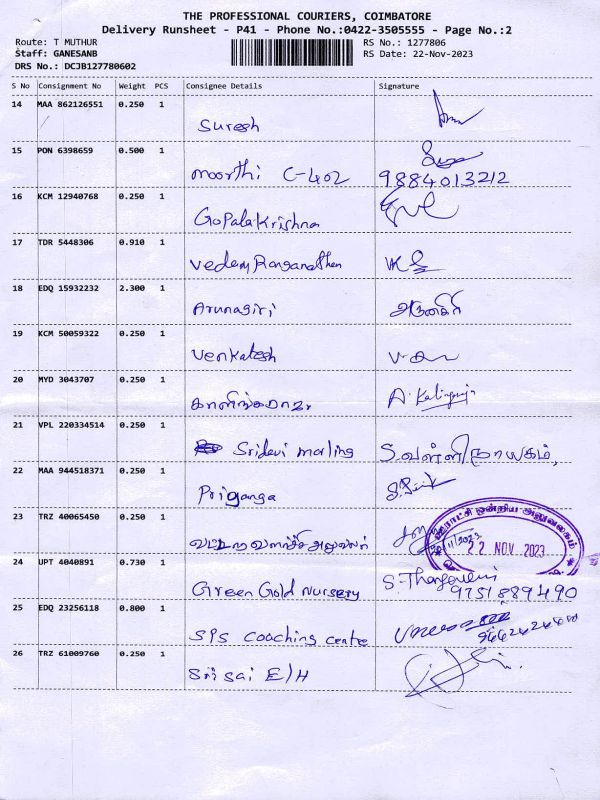 THE PROFESSIONAL COURIERS, COIMBATORE
Delivery Runsheet - P41 - Phone No.:0422-3505555 - Page No.:2
Route: T MUTHUR RS No.: 1277806
Staff: GANESANB RS Date: 22-Nov-2023
DRS No.: DCJB127780602
S No Consignment No Weight PCS Consignee Details Signature
14 MAA 862126551 0.250 1
Suresh
15 PON 6398659 0.500 1
moorthi C-402 9884013212
16 KCM 12940768 0.250 1
GopalaKrishna
17 TDR 5448306 0.910 1
Vedam Ranganathan
18 EDQ 15932232 2.300 1
Arunagiri
19 KCM 50059322 0.250 1
Venkatesh
20 MYD 3043707 0.250 1
காளிங்கராஜ A. Kalingraja
21 VPL 220334514 0.250 1
Sridevi marling S.வள்ளிநாயகம்,
22 MAA 944518371 0.250 1
Priganga
23 TRZ 40065450 0.250 1
ஊராட்சி ஒன்றிய அலுவலகம்
22 NOV 2023
24 UPT 4040891 0.730 1
Green Gold Nursery S. Thangavelu
9751889490
25 EDQ 23256118 0.800 1
SPS coaching centre
26 TRZ 61009760 0.250 1
Sri sai E/H